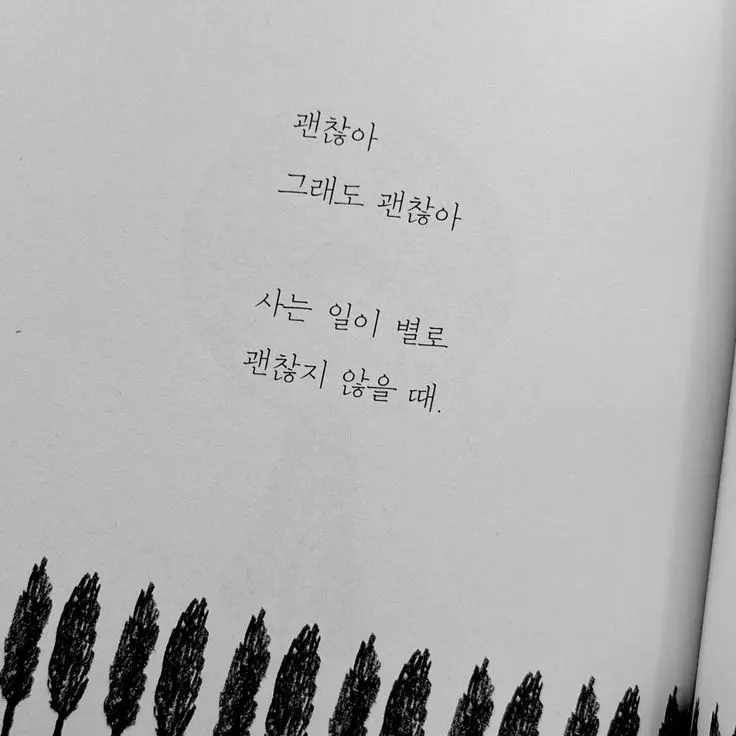 괜찮아
그래도 괜찮아
사는 일이 별로
괜찮지 않을 때.